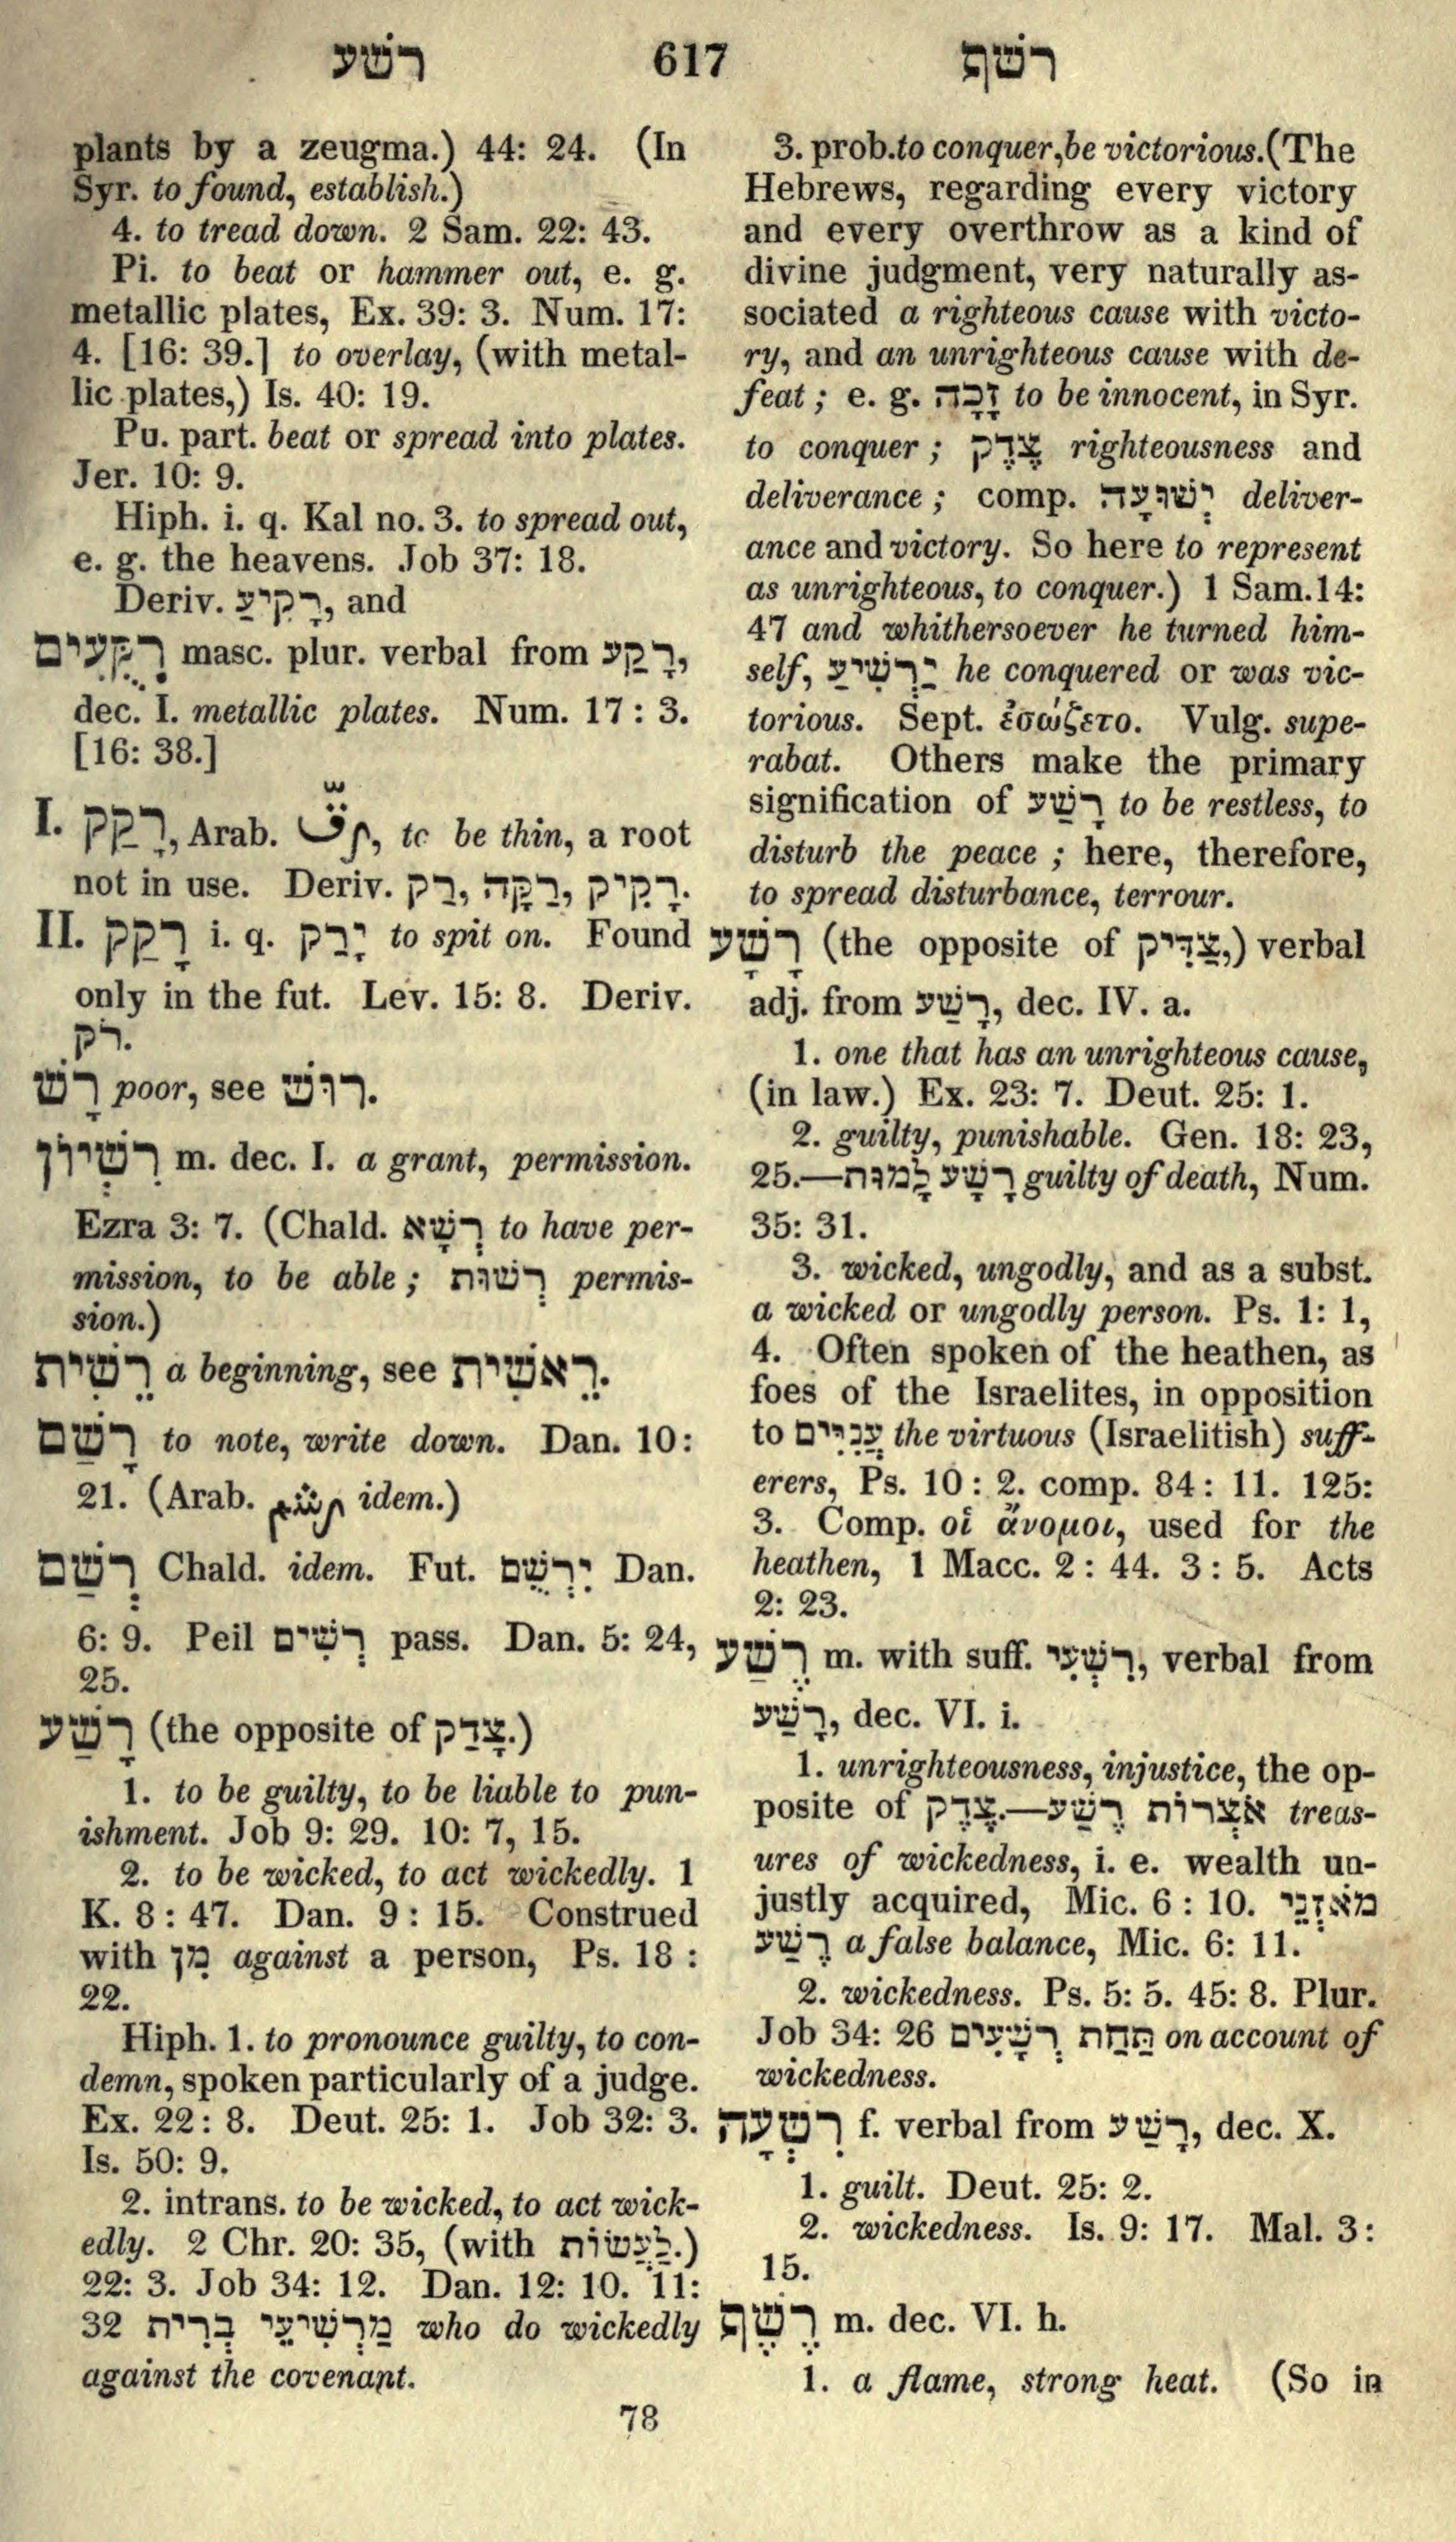 רשע 617 רשף
plants by a zeugma.) 44: 24. (In
Syr. to found, establish.)
4. to tread down. 2 Sam. 22: 43.
Pi. to beat or hammer out, e. g.
metallic plates, Ex. 39: 3. Num. 17:
4. [16: 39.] to overlay, (with metal-
lic plates,) Is. 40: 19.
Pu. part. beat or spread into plates.
Jer. 10: 9.
Hiph. i. q. Kal no. 3. to spread out,
e. g. the heavens. Job 37: 18.
Deriv. רָקִיעַ, and
רִקֻּעִים masc. plur. verbal from רָקַע,
dec. I. metallic plates. Num. 17 : 3.
[16: 38.]
I. רָקַק, Arab. رقّ, to be thin, a root
not in use. Deriv. רַק, רַקָּה, רָקִיק.
II. רָקַק i. q. יָרַק to spit on. Found
only in the fut. Lev. 15: 8. Deriv.
רֹק.
רָשׁ poor, see רוּשׁ.
רִשְׁיוֹן m. dec. I. a grant, permission.
Ezra 3: 7. (Chald. רְשָׁא to have per-
mission, to be able ; רְשׁוּת permis-
sion.)
רֵשִׁית a beginning, see רֵאשִׁית.
רָשַׁם to note, write down. Dan. 10:
21. (Arab. رشم idem.)
רְשַׁם Chald. idem. Fut. יִרְשֻׁם Dan.
6: 9. Peil רְשִׁים pass. Dan. 5: 24,
25.
רָשַׁע (the opposite of צָדַק.)
1. to be guilty, to be liable to pun-
ishment. Job 9: 29. 10: 7, 15.
2. to be wicked, to act wickedly. 1
K. 8 : 47. Dan. 9 : 15. Construed
with מִן against a person, Ps. 18 :
22.
Hiph. 1. to pronounce guilty, to con-
demn, spoken particularly of a judge.
Ex. 22: 8. Deut. 25: 1. Job 32: 3.
Is. 50: 9.
2. intrans. to be wicked, to act wick-
edly. 2 Chr. 20: 35, (with לַעֲשׂוֹת.)
22: 3. Job 34: 12. Dan. 12: 10. 11:
32 מַרְשִׁיעֵי בְרִית who do wickedly
against the covenant.
3. prob. to conquer, be victorious. (The
Hebrews, regarding every victory
and every overthrow as a kind of
divine judgment, very naturally as-
sociated a righteous cause with victo-
ry, and an unrighteous cause with de-
feat ; e. g. זָכָה to be innocent, in Syr.
to conquer ; צֶדֶק righteousness and
deliverance ; comp. יְשׁוּעָה deliver-
ance and victory. So here to represent
as unrighteous, to conquer.) 1 Sam. 14:
47 and whithersoever he turned him-
self, יַרְשִׁיעַ he conquered or was vic-
torious. Sept. ἐσώζετο. Vulg. supe-
rabat. Others make the primary
signification of רָשַׁע to be restless, to
disturb the peace ; here, therefore,
to spread disturbance, terrour.
רָשָׁע (the opposite of צַדִּיק,) verbal
adj. from רָשַׁע, dec. IV. a.
1. one that has an unrighteous cause,
(in law.) Ex. 23: 7. Deut. 25: 1.
2. guilty, punishable. Gen. 18: 23,
25.—רָשָׁע לָמוּת guilty of death, Num.
35: 31.
3. wicked, ungodly, and as a subst.
a wicked or ungodly person. Ps. 1: 1,
4. Often spoken of the heathen, as
foes of the Israelites, in opposition
to עֲנִיִּים the virtuous (Israelitish) suff-
erers, Ps. 10 : 2. comp. 84 : 11. 125:
3. Comp. οἱ ἄνομοι, used for the
heathen, 1 Macc. 2 : 44. 3 : 5. Acts
2: 23.
רֶשַׁע m. with suff. רִשְׁעִי, verbal from
רָשַׁע, dec. VI. i.
1. unrighteousness, injustice, the op-
posite of צֶדֶק.—אֹצְרוֹת רֶשַׁע treas-
ures of wickedness, i. e. wealth un-
justly acquired, Mic. 6 : 10. מֹאזְנֵי
רֶשַׁע a false balance, Mic. 6: 11.
2. wickedness. Ps. 5: 5. 45: 8. Plur.
Job 34: 26 תַּחַת רְשָׁעִים on account of
wickedness.
רִשְׁעָה f. verbal from רָשַׁע, dec. X.
1. guilt. Deut. 25: 2.
2. wickedness. Is. 9: 17. Mal. 3:
15.
רֶשֶׁף m. dec. VI. h.
1. a flame, strong heat. (So in
78